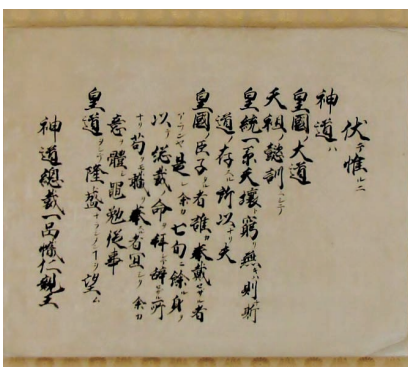 伏テ惟ルニ
神道ハ
皇國ノ大道
天祖ノ懿訓ニシテ
皇統一系天壤ト窮リ無キハ則斯
道ノ存スル所以ナリ夫
皇國ノ臣子タル者誰カ奉戴セサル者
アランヤ是レ余カ七旬ニ餘ル身ヲ
以テ総裁ノ命ヲ拝シテ辞セサル所
ナリ苟モ職ヲ奉スル者宜シク余カ
意ヲ體シ黽勉従事
皇道ヲシテ隆盛ナラシメンヿヲ望ム
神道總裁一品幟仁親王